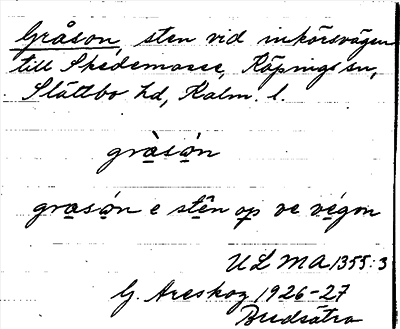 Gråson, sten vid inkörsvägen
till Skedemosse, Köpings sn,
Slättbo hd, Kalm. l.
gràsón
grasón e stên op ve végon
ULMA 1355:3
G. Areskog 1926-27
Bredsätra